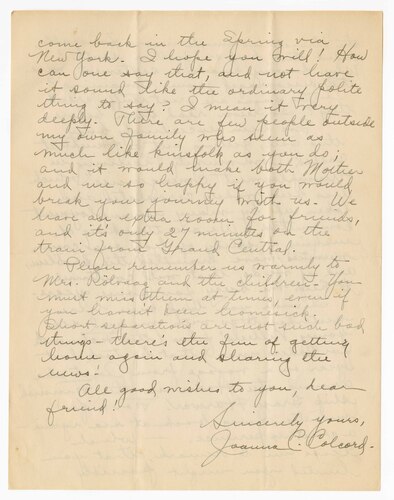 come back in the Spring via
New York. I hope you will! How
can one say that, and not have
it sound like the ordinary polite
thing to say? I mean it very
deeply. There are few people outside
my own family who seem as
much like kinsfolk as you do;
and it would make both Mother
and me so happy if you would
break your journey with us. We
have an extra room for friends,
and it's only 27 minutes on the
train from Grand Central.
Please remember us warmly to
Mrs. Rölvaag and the children. You
must miss them at times, even if
you haven't been homesick.
Short separations are not such bad
things - there's the fun of getting
home again and sharing the
news!
All good wishes to you, dear
friend!
Sincerely yours,
Joanna C. Colcord.